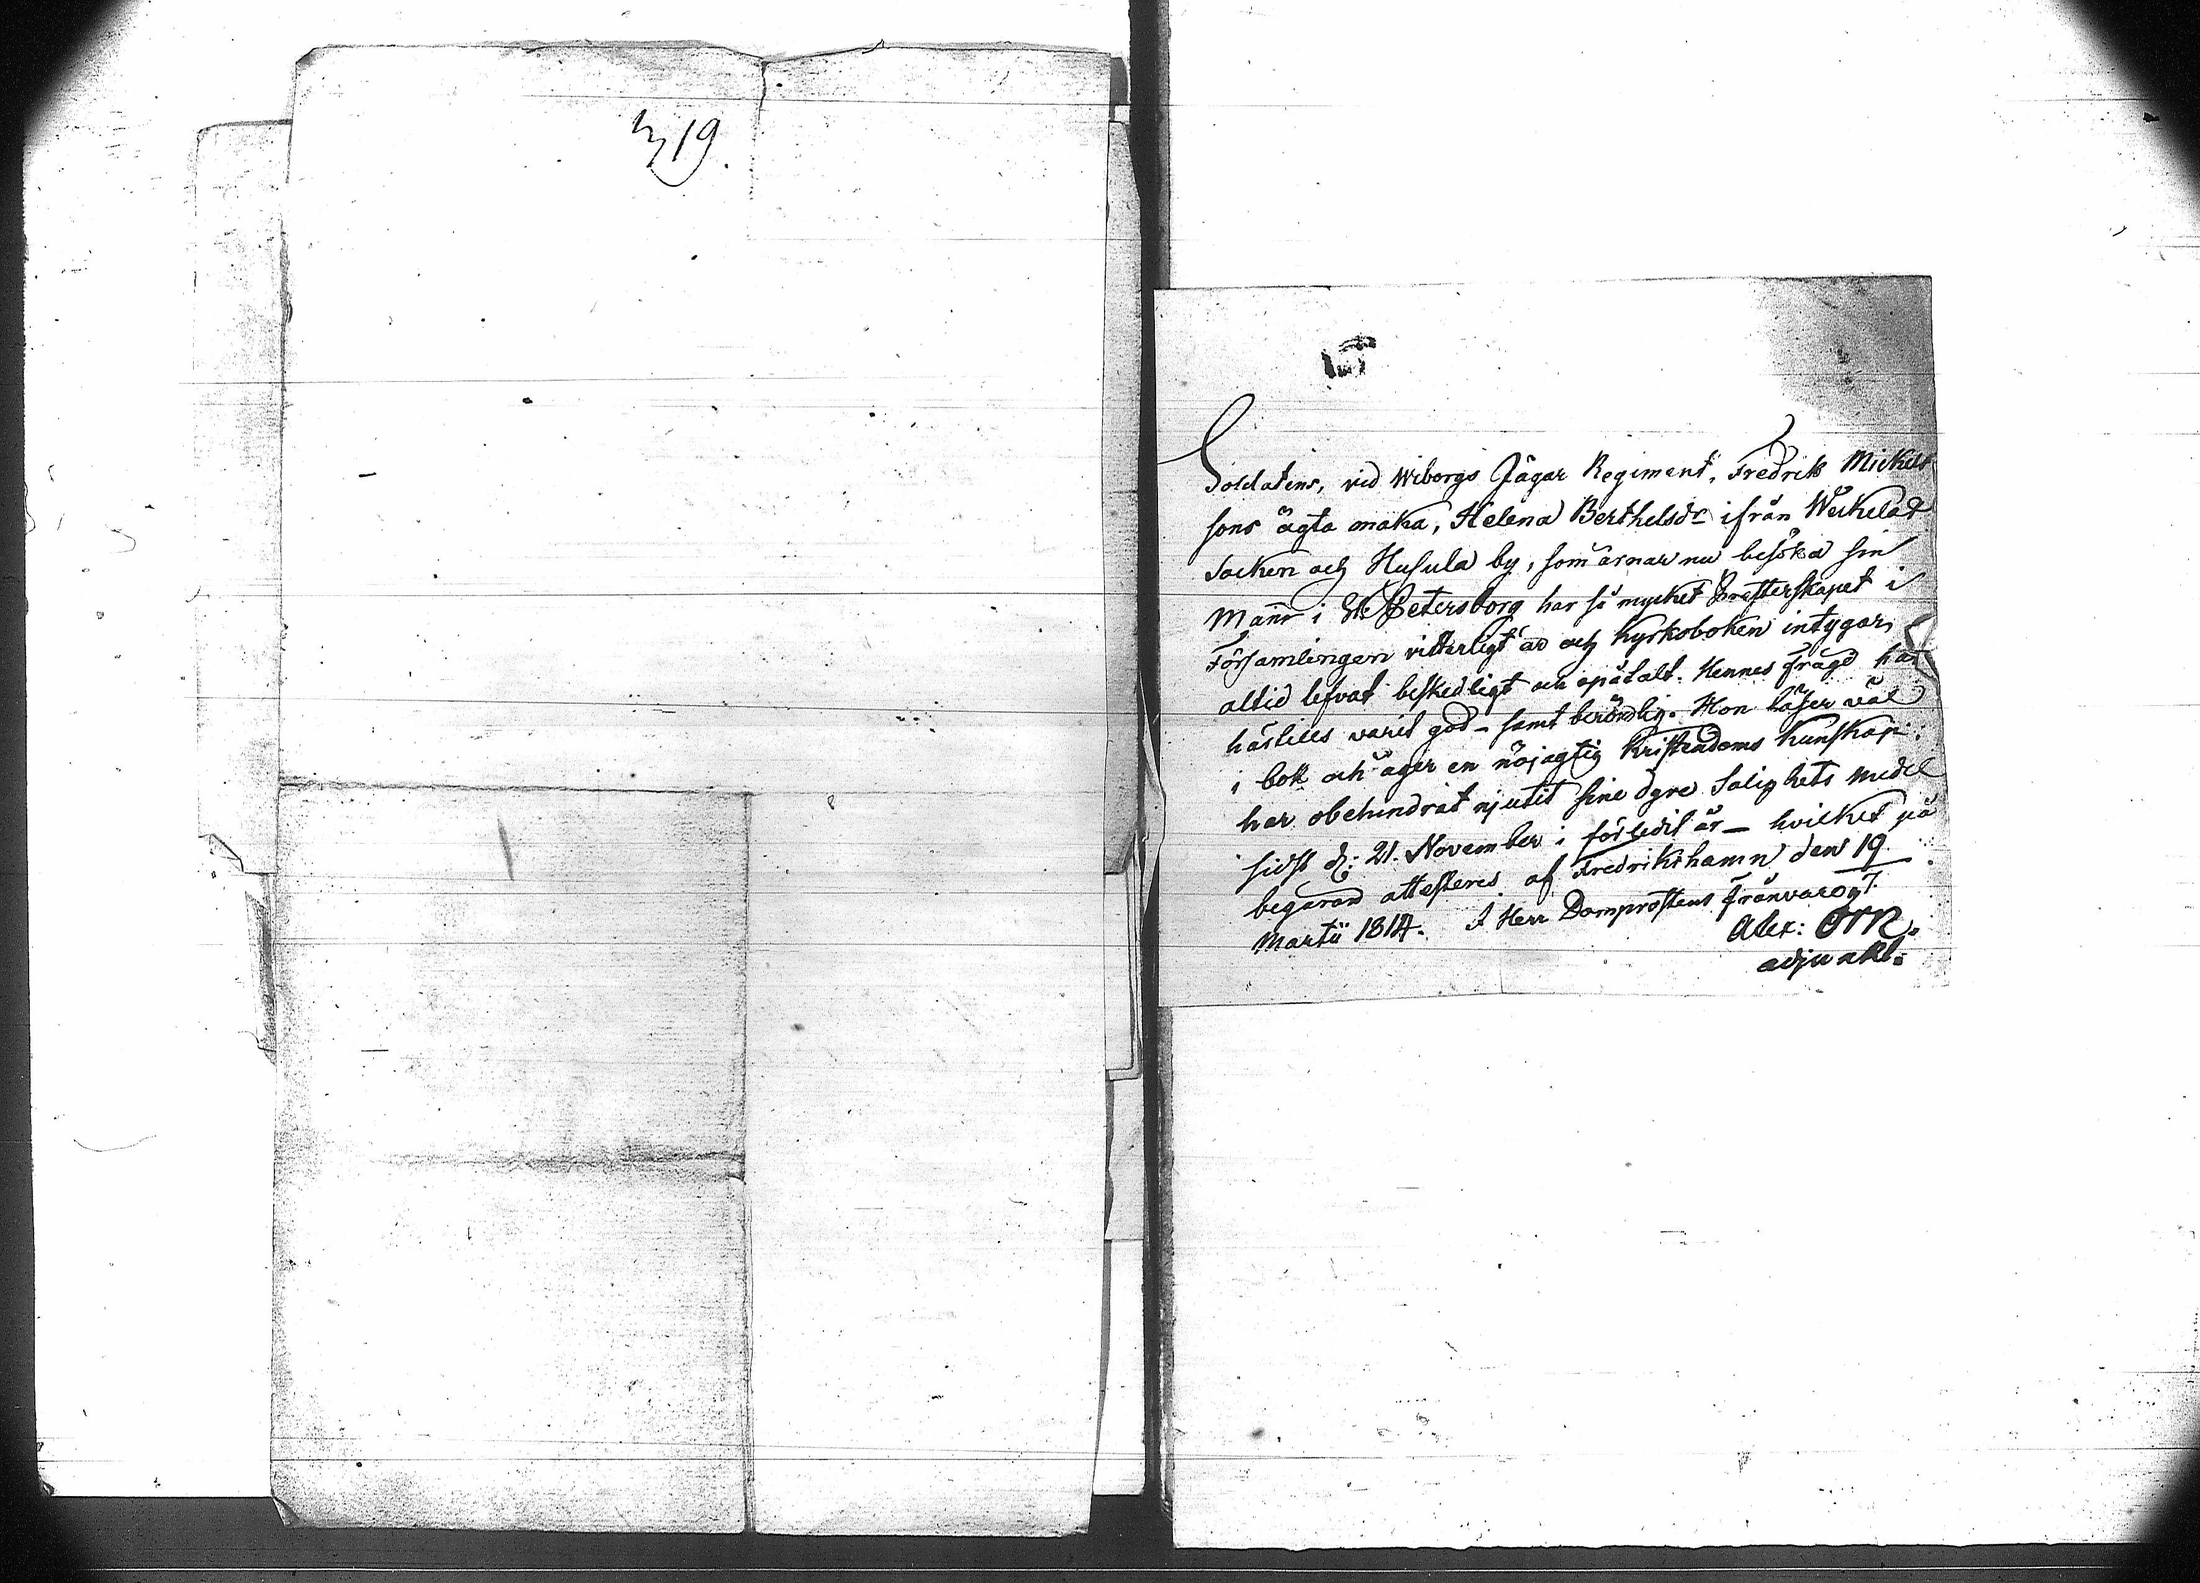 319.
Soldatens, vid Wiborgs Jägar Regiment, Fredrik Mickels
sons ägta maka, Helena Berthelsdr ifrån Weckelax
Socken och Husula by, som ärnar nu besöka sin
Mann i St Petersborg har så mycket Presterskapet i
Församlingen vitterligt är och Kyrkoboken intygar,
altid lefvat beskedligt och opåtalt. Hennes frägd har
härtills varit god - samt berömlig. Hon läser väl
i bok och äger en nöjagtig Kristendoms Kunskap:
har obehindrat njutit sine dyre Salighets medel
sidst d: 21. November i förledit år - hvilket på
begäran attesteres af Fredrikshamn den 19
Martii 1814. I Herr Domprostens frånvaro
Alex: Orn.
adjunkt.